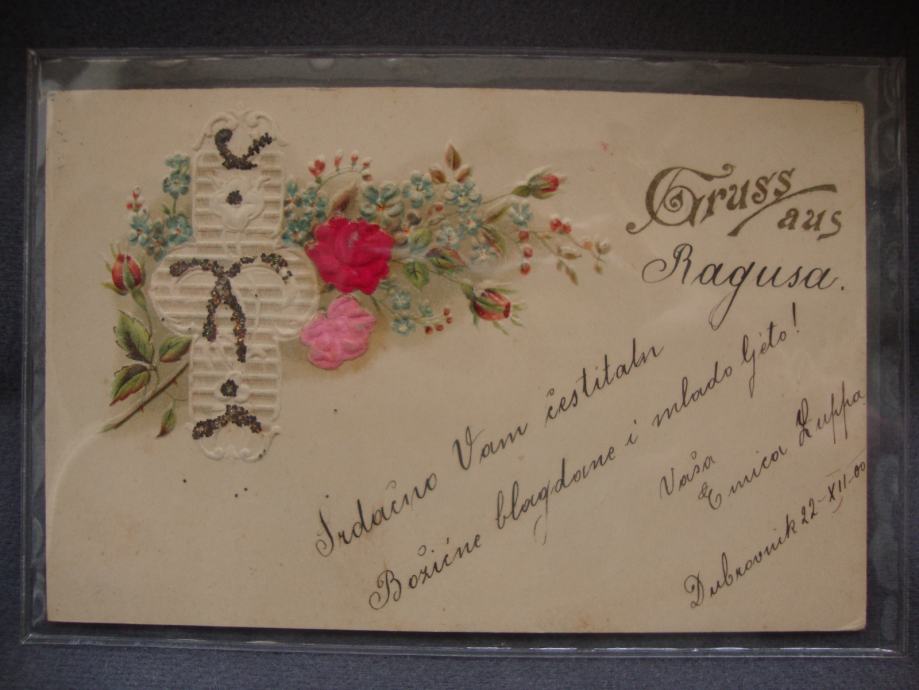 Gruss
aus
Ragusa.
Srdačno Vam čestitam
Božićne blagdane i mlado ljeto!
Vaša
Emica Zuppa
Dubrovnik 22-XII-00